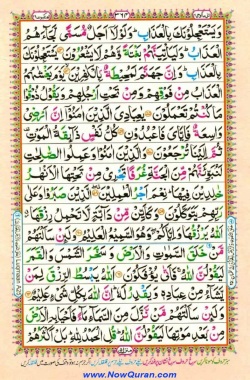 وَيَسْتَعْجِلُوْنَكَ بِالْعَذَابِ ؕ وَلَوْلَاۤ اَجَلٌ مُّسَمًّى لَّجَآءَهُمُ
الْعَذَابُ ؕ وَلَيَاْتِيَنَّهُمْ بَغْتَةً وَّهُمْ لَا يَشْعُرُوْنَ ۝ يَسْتَعْجِلُوْنَكَ
بِالْعَذَابِ ؕ وَاِنَّ جَهَنَّمَ لَمُحِيْطَةٌۢ بِالْكٰفِرِيْنَ ۝ يَوْمَ يَغْشٰىهُمُ
الْعَذَابُ مِنْ فَوْقِهِمْ وَمِنْ تَحْتِ اَرْجُلِهِمْ وَيَقُوْلُ ذُوْقُوْا
مَا كُنْتُمْ تَعْمَلُوْنَ ۝ يٰعِبَادِيَ الَّذِيْنَ اٰمَنُوْۤا اِنَّ اَرْضِيْ
وَاسِعَةٌ فَاِيَّايَ فَاعْبُدُوْنِ ۝ كُلُّ نَفْسٍ ذَآئِقَةُ الْمَوْتِ
ثُمَّ اِلَيْنَا تُرْجَعُوْنَ ۝ وَالَّذِيْنَ اٰمَنُوْا وَعَمِلُوا الصّٰلِحٰتِ
لَنُبَوِّئَنَّهُمْ مِّنَ الْجَنَّةِ غُرَفًا تَجْرِيْ مِنْ تَحْتِهَا الْاَنْهٰرُ
خٰلِدِيْنَ فِيْهَا ؕ نِعْمَ اَجْرُ الْعٰمِلِيْنَ ۝ الَّذِيْنَ صَبَرُوْا وَعَلٰى
رَبِّهِمْ يَتَوَكَّلُوْنَ ۝ وَكَاَيِّنْ مِّنْ دَآبَّةٍ لَّا تَحْمِلُ رِزْقَهَا
اَللّٰهُ يَرْزُقُهَا وَاِيَّاكُمْ وَهُوَ السَّمِيْعُ الْعَلِيْمُ ۝ وَلَئِنْ سَاَلْتَهُمْ
مَّنْ خَلَقَ السَّمٰوٰتِ وَالْاَرْضَ وَسَخَّرَ الشَّمْسَ وَالْقَمَرَ
لَيَقُوْلُنَّ اللّٰهُ ۚ فَاَنّٰى يُؤْفَكُوْنَ ۝ اَللّٰهُ يَبْسُطُ الرِّزْقَ لِمَنْ
يَّشَآءُ مِنْ عِبَادِهٖ وَيَقْدِرُ لَهٗ ؕ اِنَّ اللّٰهَ بِكُلِّ شَيْءٍ عَلِيْمٌ ۝
وَلَئِنْ سَاَلْتَهُمْ مَّنْ نَّزَّلَ مِنَ السَّمَآءِ مَآءً فَاَحْيَا بِهِ الْاَرْضَ
مِنْۢ بَعْدِ مَوْتِهَا لَيَقُوْلُنَّ اللّٰهُ ؕ قُلِ الْحَمْدُ لِلّٰهِ ؕ بَلْ اَكْثَرُهُمْ
www.NowQuran.com